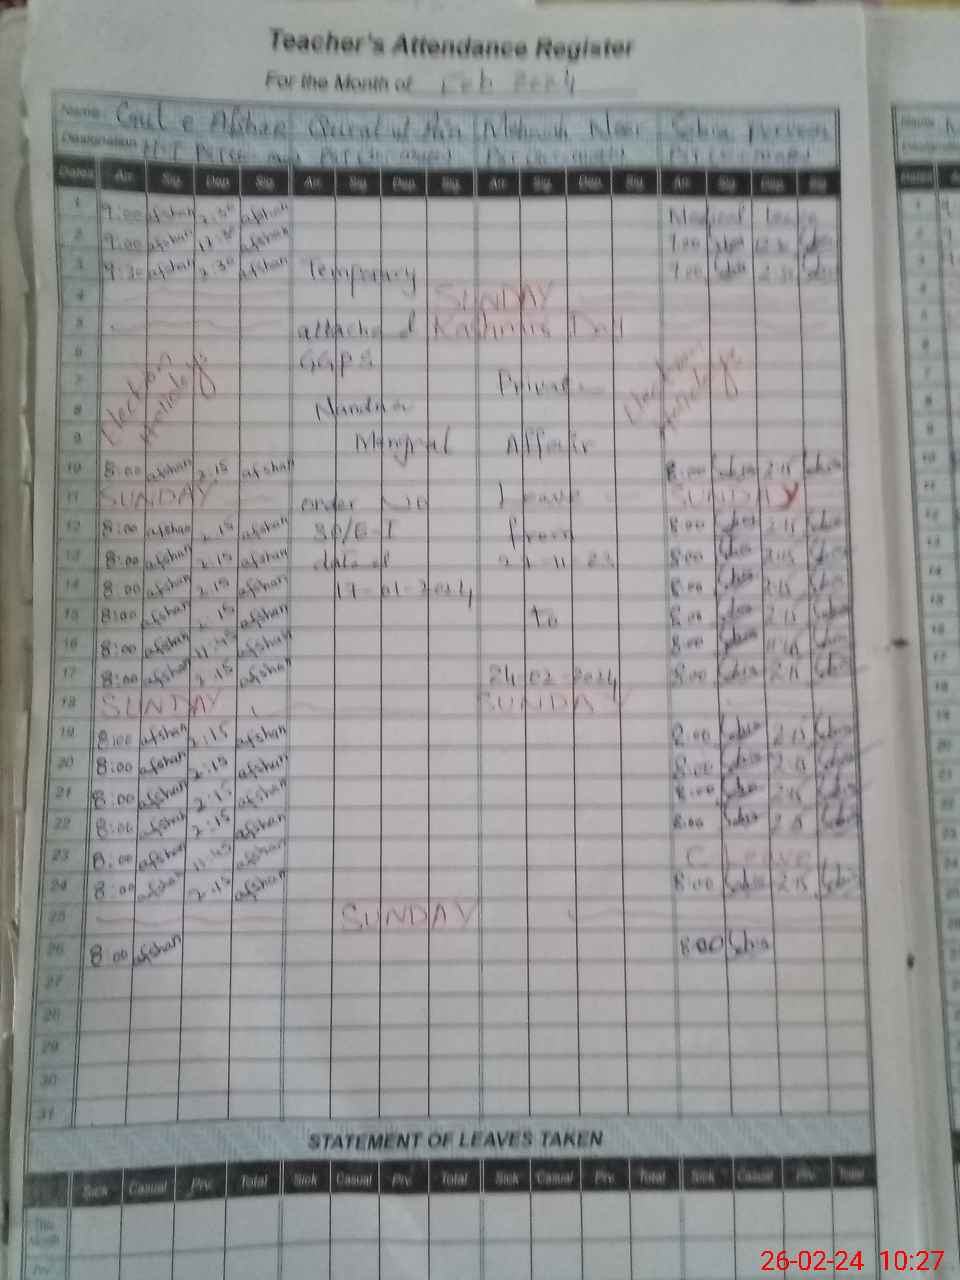 Teacher's Attendance Register
For the Month of Feb 2024
Name Gul e Afshan Qurat ul Ain Mehwish Noor Sabia Perveen
Designation
Dates Arr. Sig. Dep. Sig. Arr. Sig. Dep. Sig. Arr. Sig. Dep. Sig. Arr. Sig. Dep. Sig.
1 9:00 afshan 2:30 afshan Medical leave
2 9:00 afshan 12:30 afshan 9:00 Sabia 12:30 Sabia
3 9:30 afshan 2:30 afshan Temporary 9:00 Sabia 2:30 Sabia
4 SUNDAY
5 attached Kashmir Day
6 GGPS
7 Election Holidays Private Election Holidays
8 Nandna
9 Mangral Affair
10 8:00 afshan 2:15 afshan 8:00 Sabia 2:15 Sabia
11 SUNDAY order No Leave SUNDAY
12 8:00 afshan 2:15 afshan SO/E-I from 8:00 Sabia 2:15 Sabia
13 8:00 afshan 2:15 afshan dated 8:00 Sabia 2:15 Sabia
14 8:00 afshan 2:15 afshan 17-01-2024 8:00 Sabia 2:15 Sabia
15 8:00 afshan 2:15 afshan to 8:00 Sabia 2:15 Sabia
16 8:00 afshan 11:45 afshan 8:00 Sabia 11:45 Sabia
17 8:00 afshan 2:15 afshan 24-02-2024 8:00 Sabia 2:15 Sabia
18 SUNDAY SUNDAY
19 8:00 afshan 2:15 afshan 8:00 Sabia 2:15 Sabia
20 8:00 afshan 2:15 afshan 8:00 Sabia 2:15 Sabia
21 8:00 afshan 2:15 afshan 8:00 Sabia 2:15 Sabia
22 8:00 afshan 2:15 afshan 8:00 Sabia 2:15 Sabia
23 8:00 afshan 11:45 afshan C Leave
24 8:00 afshan 2:15 afshan 8:00 Sabia 2:15 Sabia
25 SUNDAY
26 8:00 afshan 8:00 Sabia
27
28
29
30
31
STATEMENT OF LEAVES TAKEN
Sick Casual Prv. Total Sick Casual Prv. Total Sick Casual Prv. Total Sick Casual Prv. Total
This Month
Prv.
26-02-24 10:27